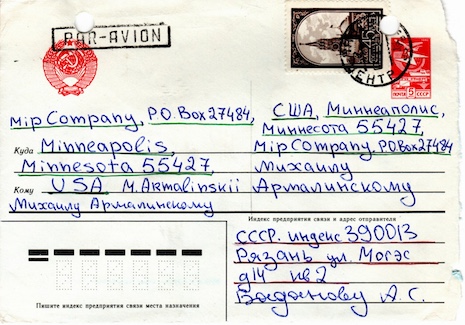 PAR-AVION
ПОЧТА 5 СССР
ЦЕНТР
Mip Company, P.O. Box 27484,
Куда Minneapolis,
Minnesota 55427,
Кому USA, M. Armalinskii
Михаилу Армалинскому
США, Миннеаполис,
Миннесота 55427,
Mip Company. P.O. Box 27484
Михаилу
Армалинскому
Индекс предприятия связи и адрес отправителя
СССР. индекс 390013
Рязань ул. Могэс
д14 кв 2
Богданову А. С.
Пишите индекс предприятия связи места назначения